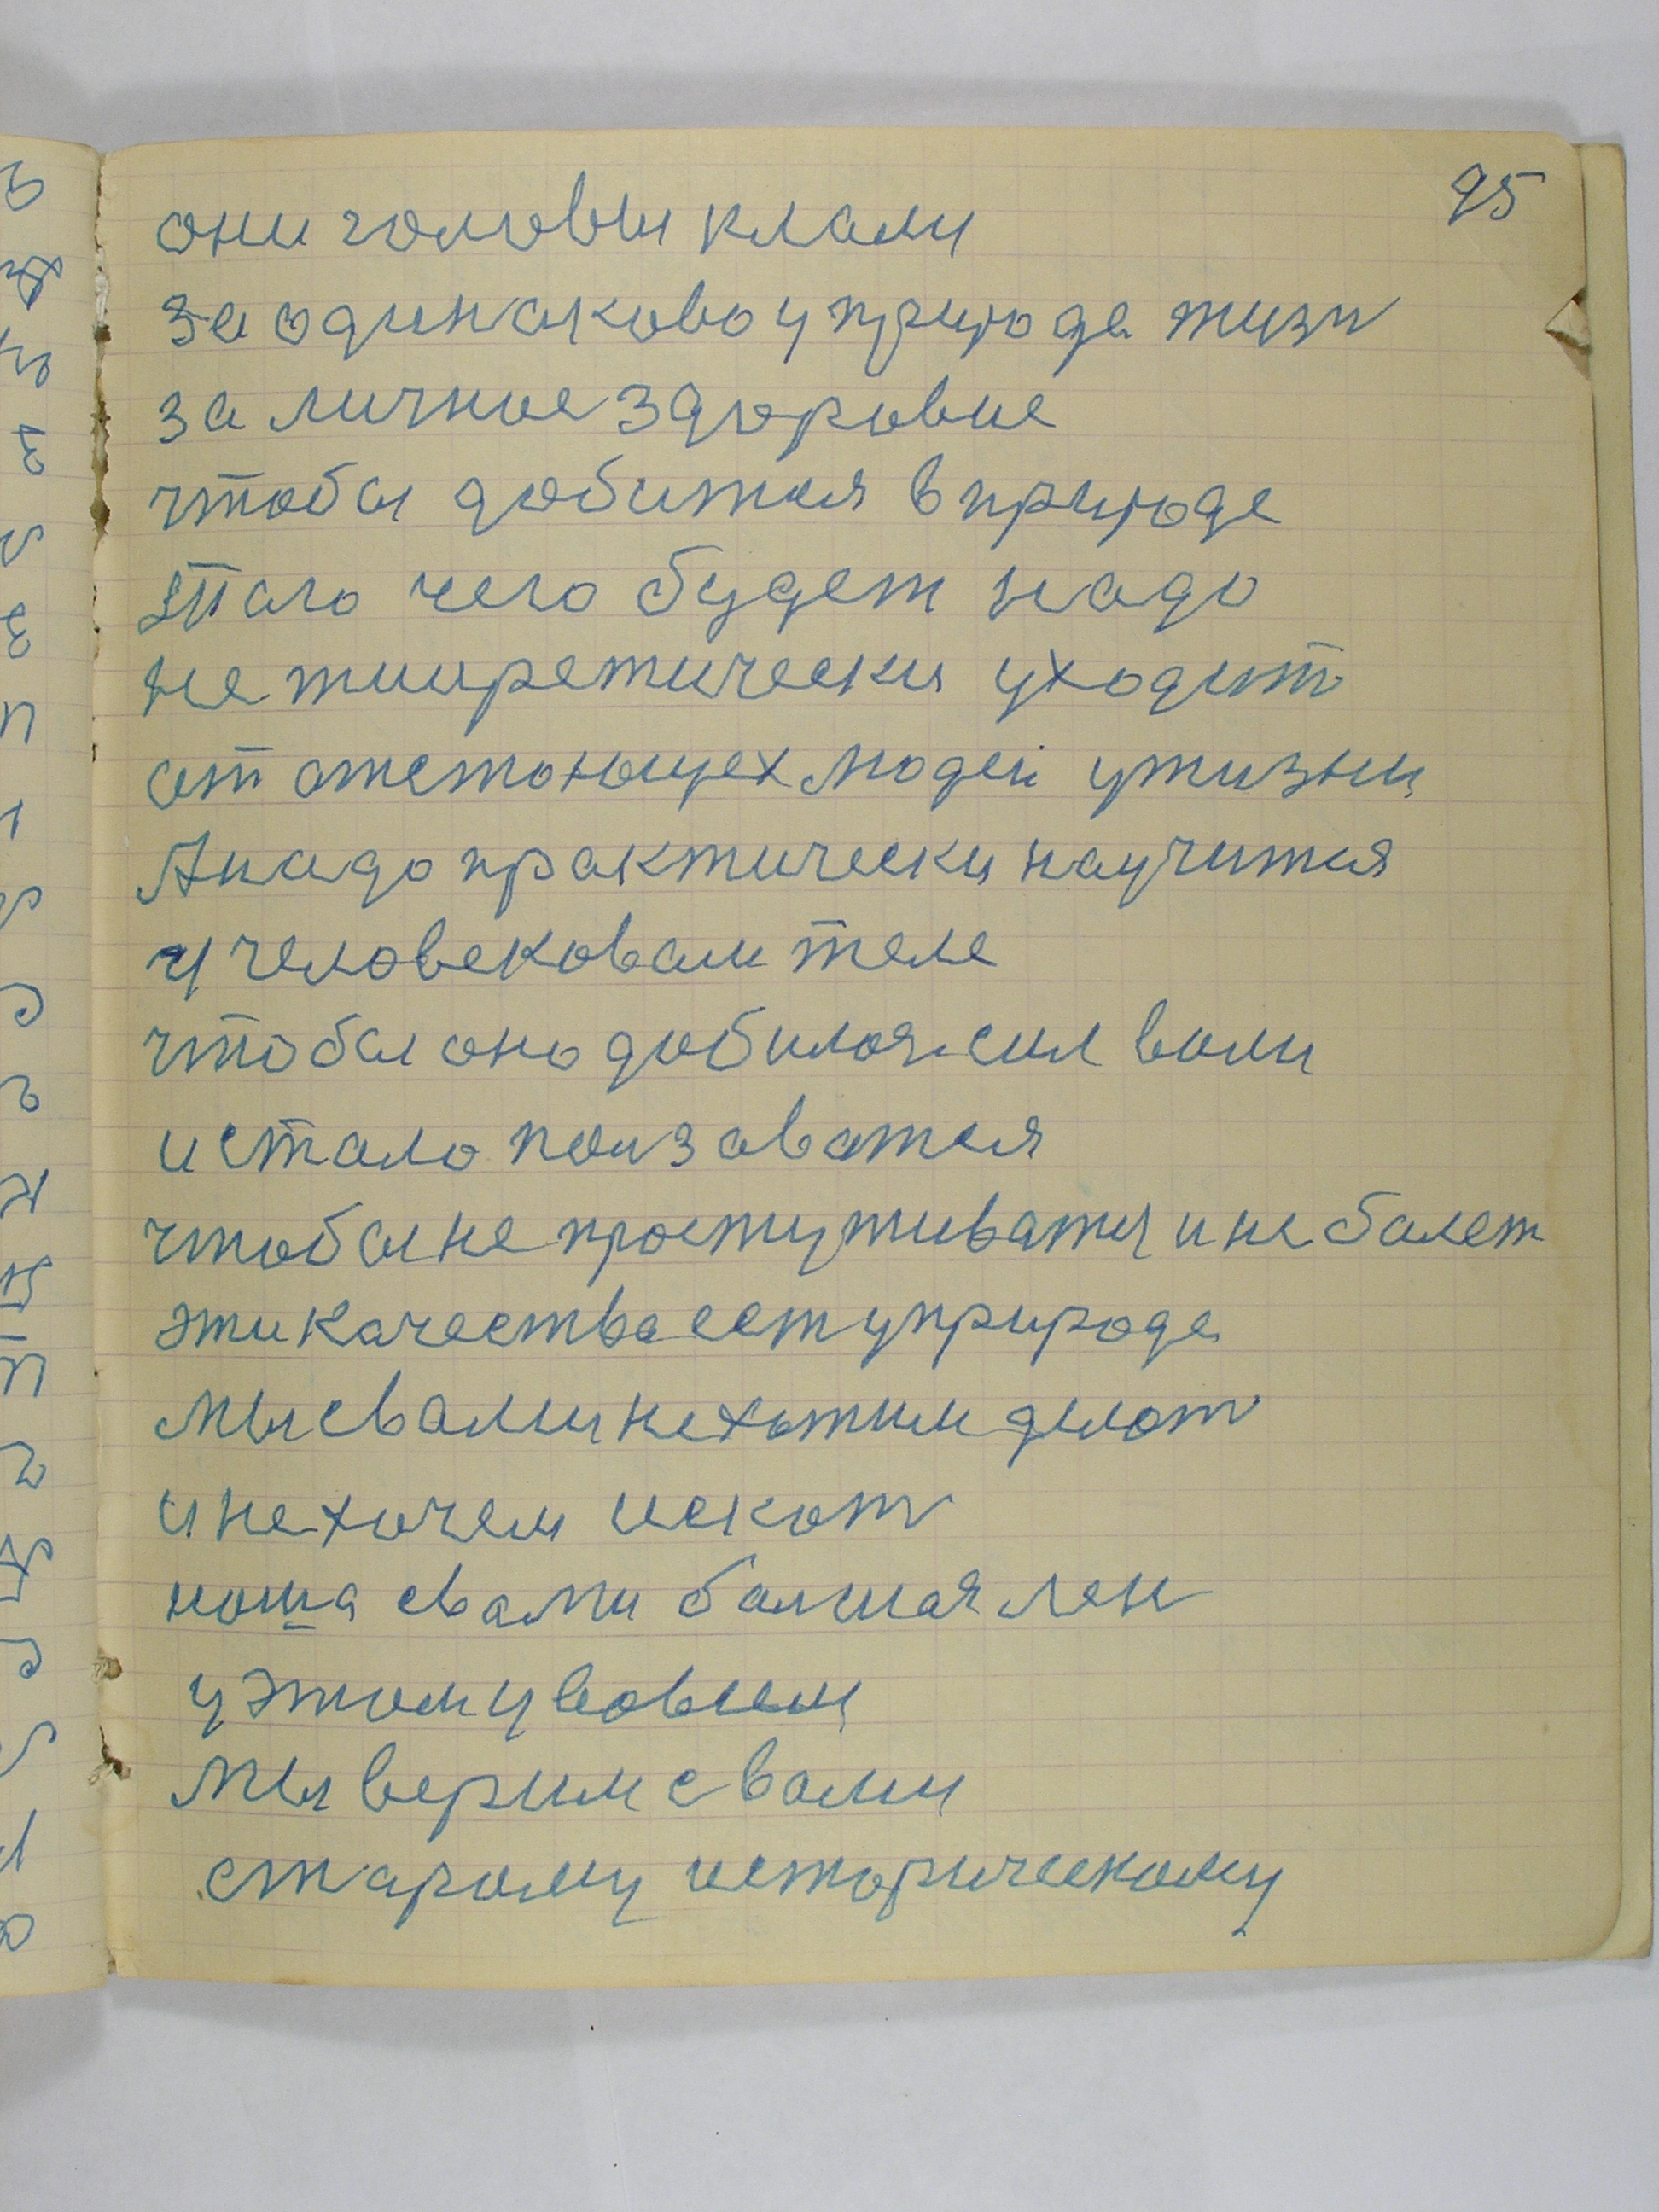 95
они головы клали
за одинаково у природе жизн
за личное здоровие
чтобы добится в природе
этаго чего будет надо
не тииретически уходит
от отстоющех людей у жизни
А надо практически научится
у человековам теле
чтобы оно добилося сил воли
и стало ползаватся
чтобы не простуживатся и не балет
эти качества ест у природе
мы свами не хотим делат
и не хочем искат
наша свами балшая лен
у этому всовсем
мы верим свами
старому историческому